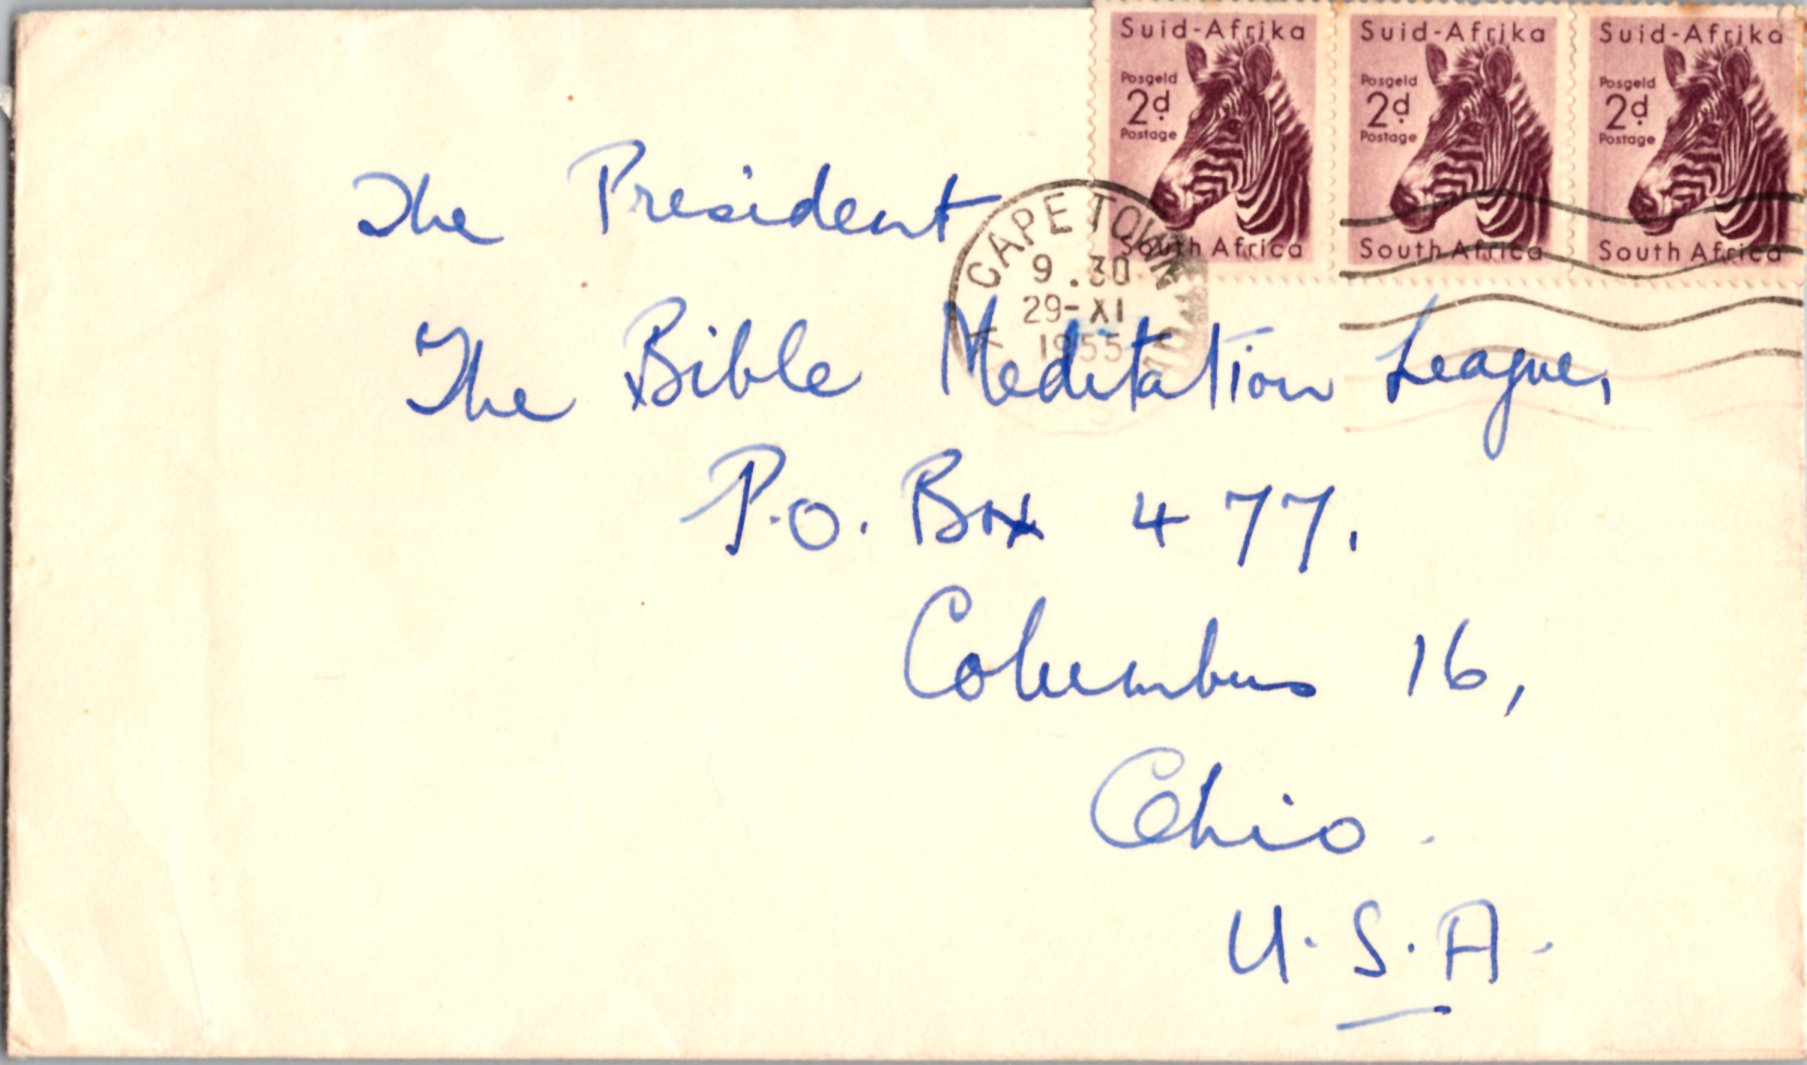 Suid-Afrika Suid-Afrika Suid-Afrika
Posgeld Posgeld Posgeld
2d 2d 2d
Postage Postage Postage
South Africa South Africa South Africa
CAPE TOWN
9.30
29-XI
1955
The President
The Bible Meditation League,
P.O. Box 477.
Columbus 16,
Ohio.
U.S.A.